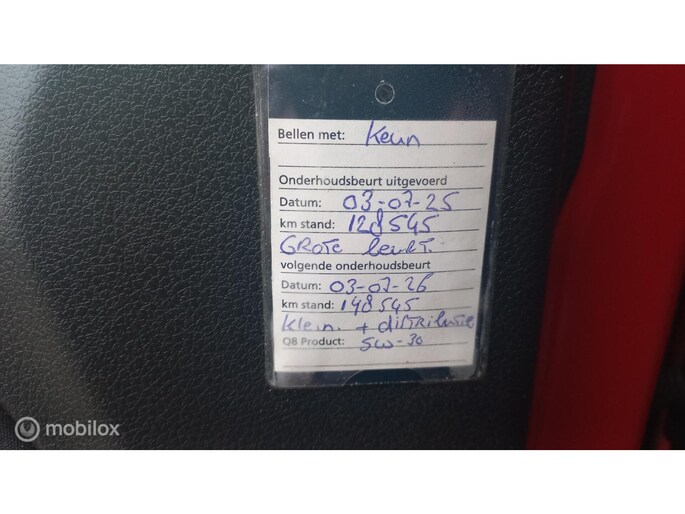 Bellen met: Keun
Onderhoudsbeurt uitgevoerd
Datum: 03-07-25
km stand: 128545
GROTE beurt.
volgende onderhoudsbeurt
Datum: 03-07-26
km stand: 148545
Klein. + distributie
Q8 Product: 5W-30
mobilox